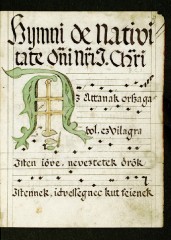 Hymni de Nativi
tate Dñi Nři J. Chři
Az Attanak orszaga
bol, ez Vilagra
Isten iöve, neveztetek örök
Istennek, idvessegnec kut feienek